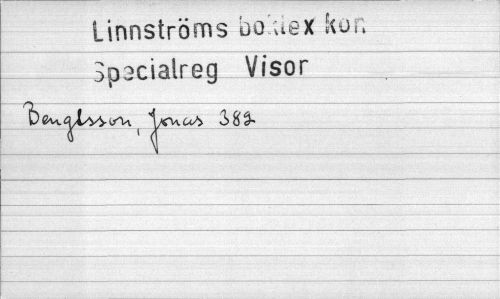 Linnströms boklex kor.
Specialreg Visor
Bengtsson, Jonas 382